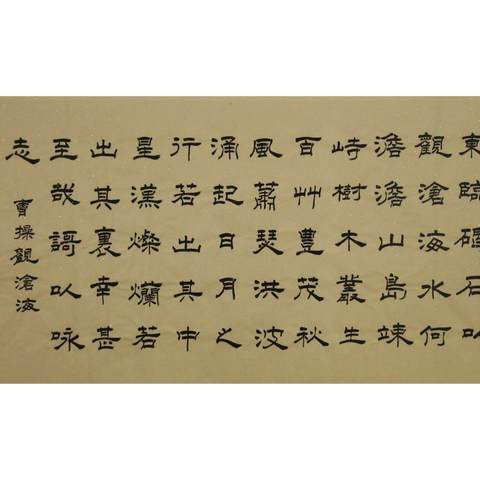 東臨碣石以
觀滄海水何
澹澹山島竦
峙樹木叢生
百艸豊茂秋
風蕭瑟洪波
涌起日月之
行若出其中
星漢燦爛若
出其裏幸甚
至哉謌以咏
志
曹操觀滄海